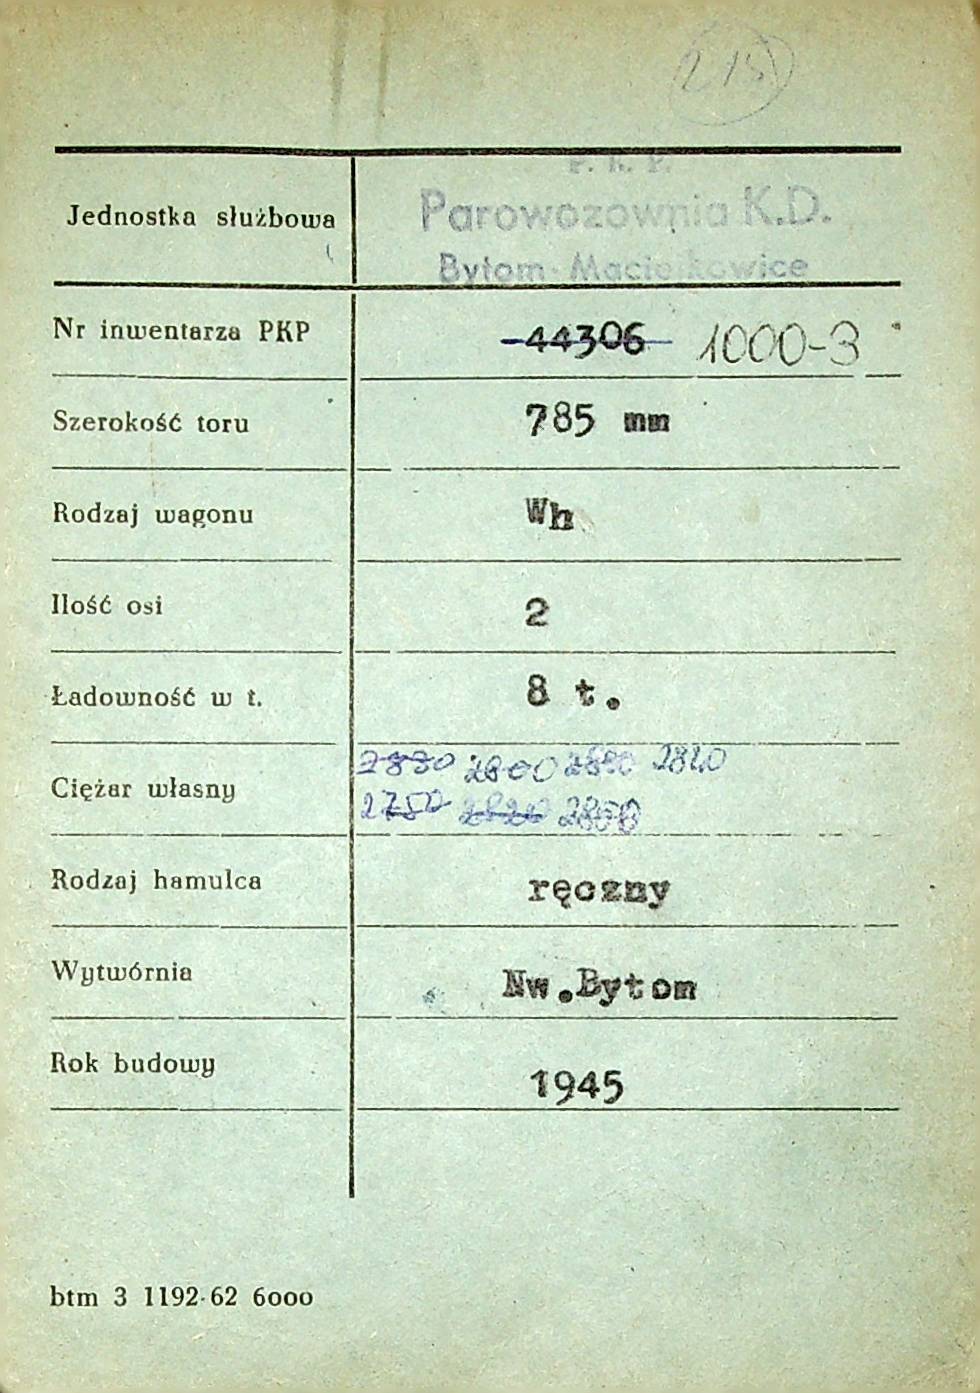 215
P. K. P.
Jednostka służbowa Parowozownia K.D.
Bytom-Maciejkowice
Nr inwentarza PKP 44306 1000-3
Szerokość toru 785 mm
Rodzaj wagonu Wh
Ilość osi 2
Ładowność w t. 8 t.
2830 2800 2820
Ciężar własny
2750 2820
Rodzaj hamulca ręczny
Wytwórnia Nw.Bytom
Rok budowy 1945
btm 3 1192-62 6000